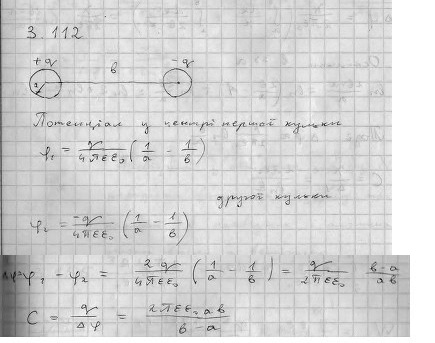 3.112
+q b -q
a
Потенціал у центрі першої кульки
φ₁ = q/(4πεε₀) (1/a - 1/b)
другої кульки
φ₂ = -q/(4πεε₀) (1/a - 1/b)
Δφ=φ₁ - φ₂ = 2q/(4πεε₀) (1/a - 1/b) = q/(2πεε₀) (b-a)/(ab)
C = q/Δφ = 2πεε₀ab/(b-a)